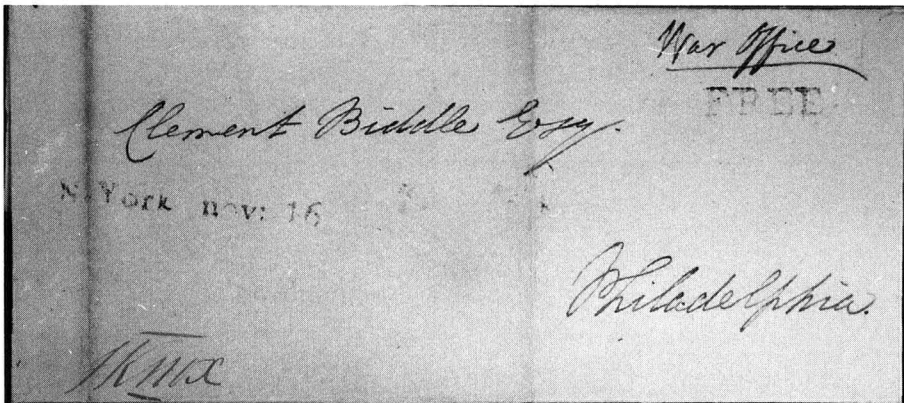 War Office
FREE
Clement Biddle Esq.
N. York nov: 16
Philadelphia.
HKnox